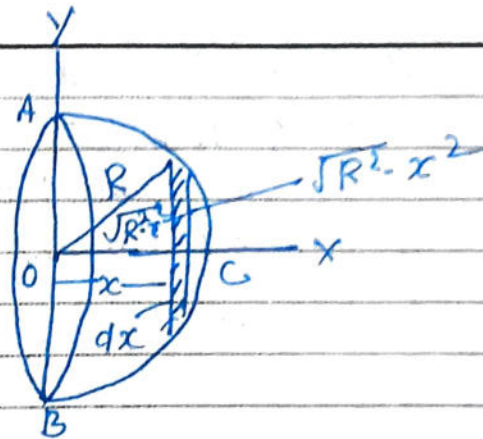 Y
A
R
√R²- x²
√R²-x²
O
x
C
X
dx
B